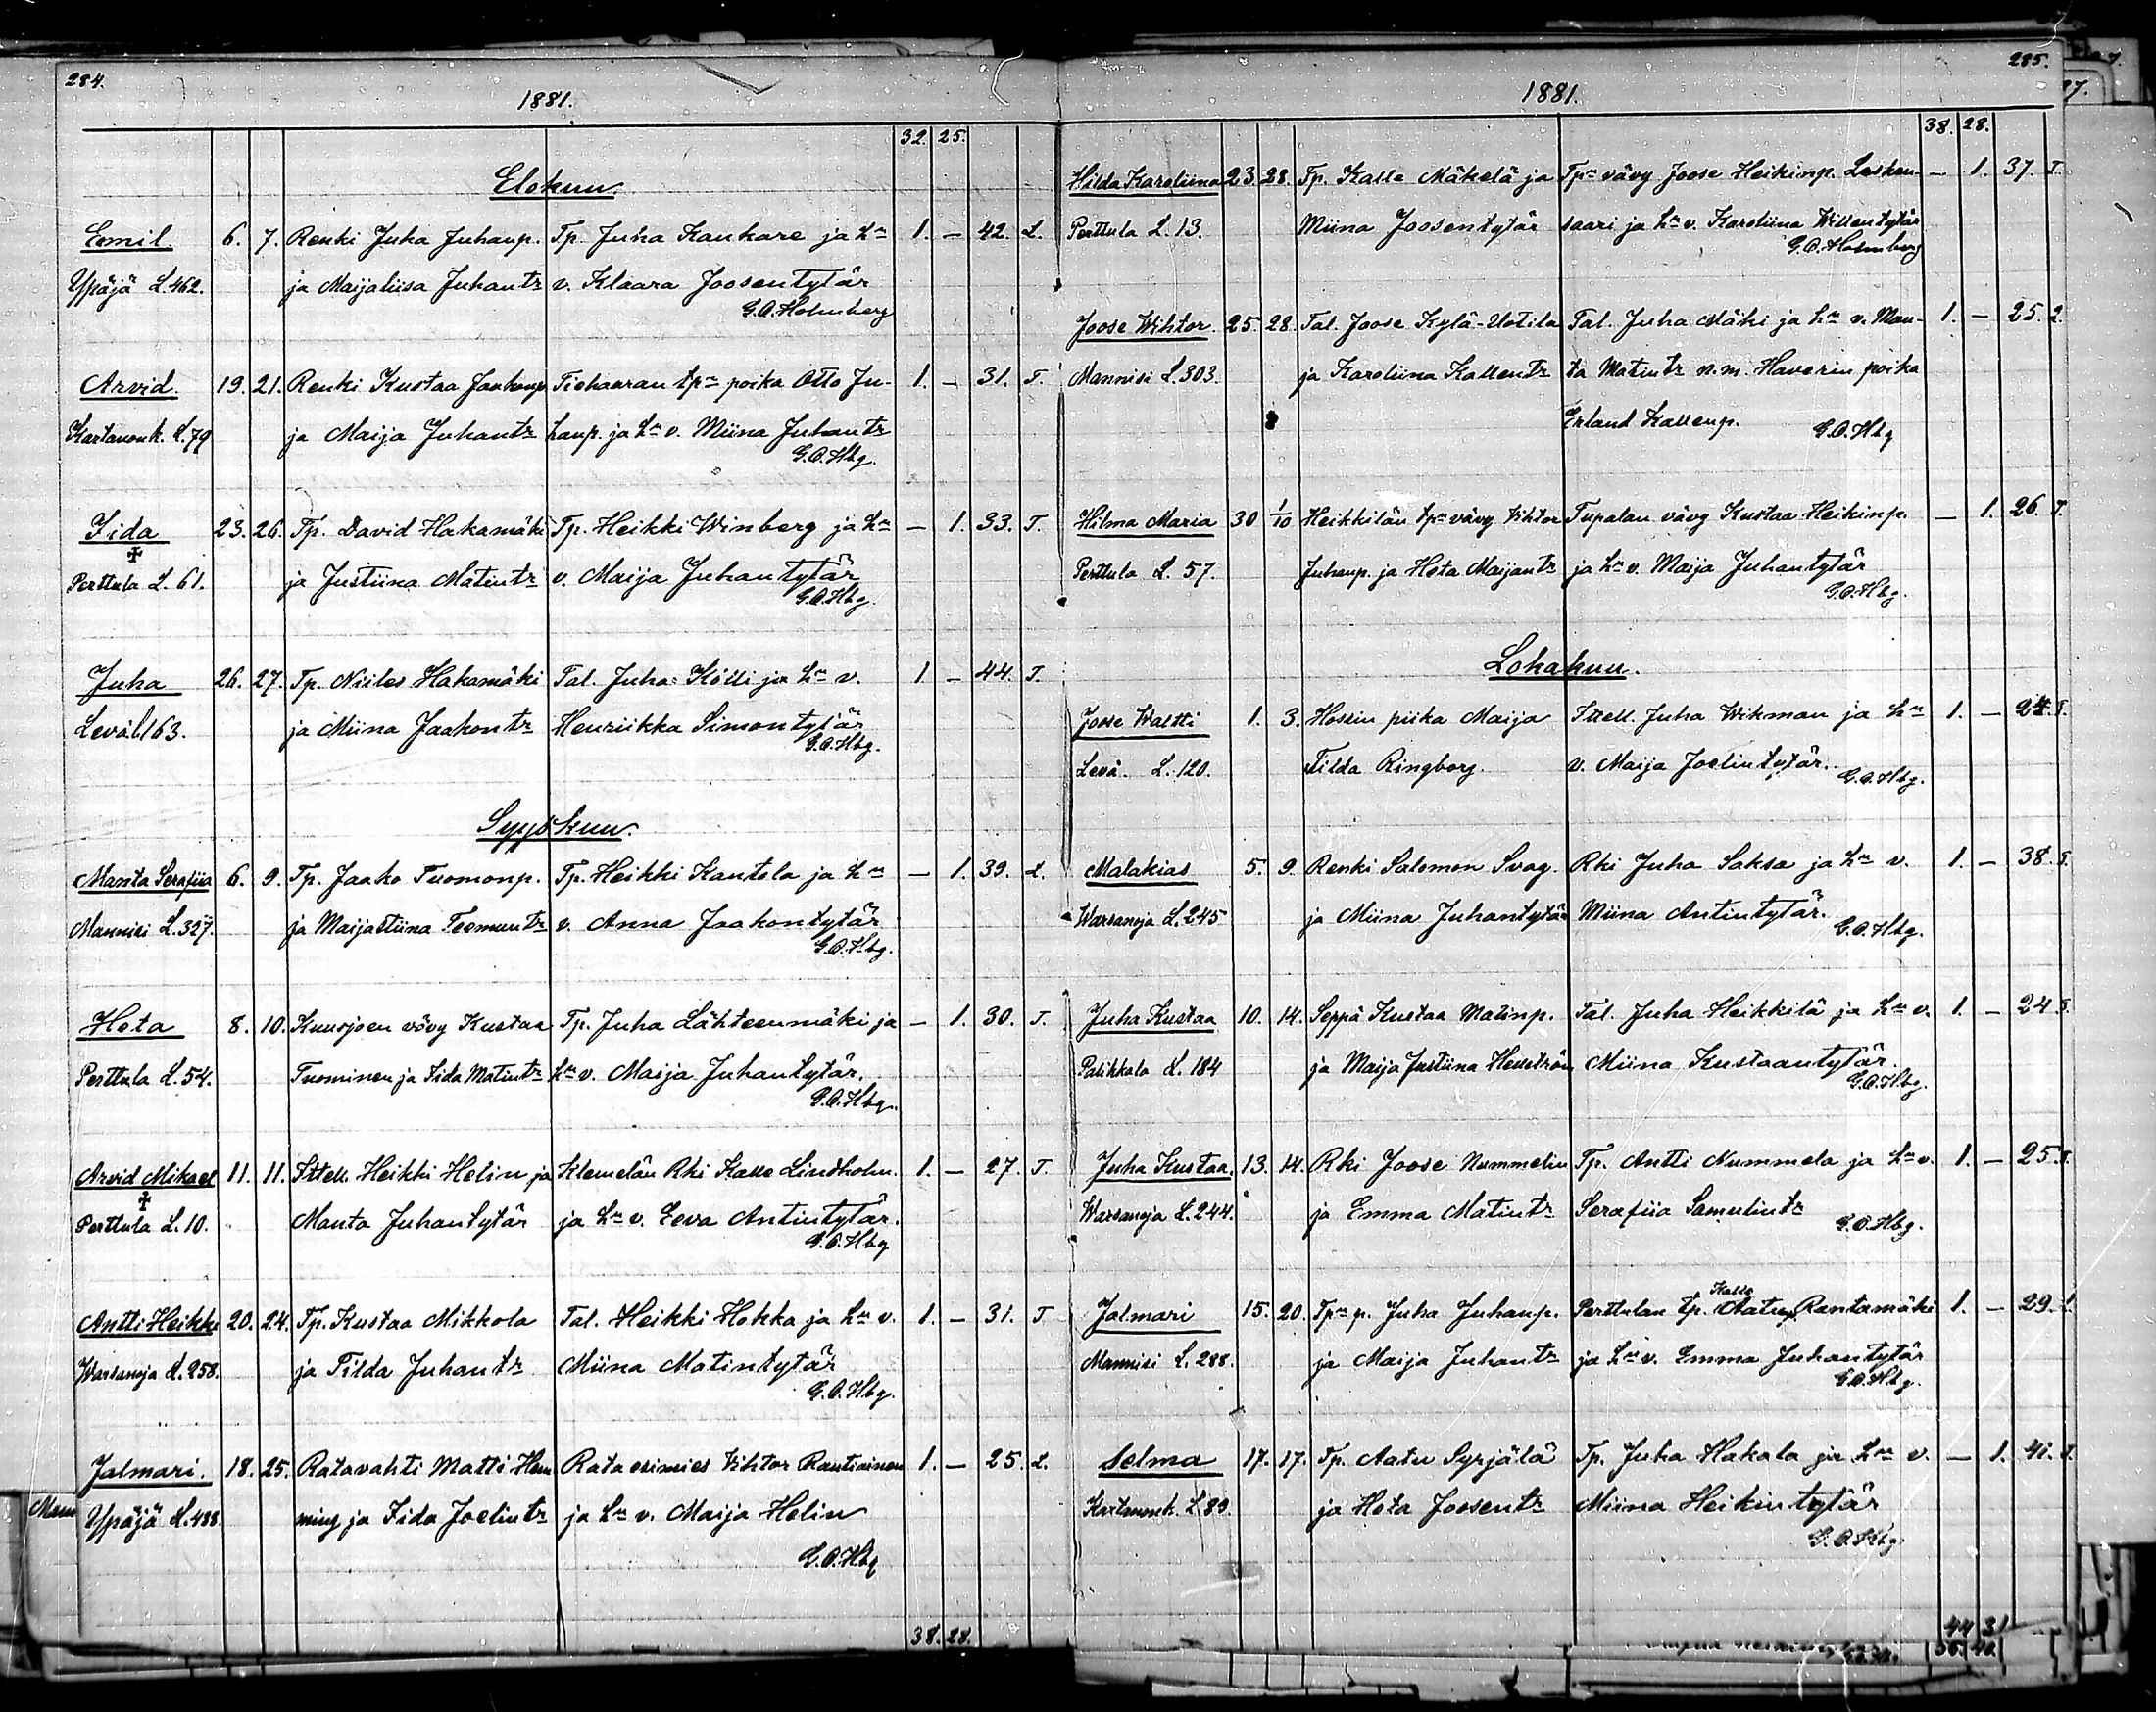 284.
1881.
32. 25.
Elokuu.
Emil. 6. 7. Renki Juha Juhanp. Tp. Juha Kaukare ja hn 1. — 42. L.
Ypäjä L. 462. ja Maijaliisa Juhantr v. Klaara Joosentytär
G.A. Holmberg
Arvid. 19. 21. Renki Kustaa Jaakonp Tiehaaran tpn poika Otto Ju- 1. — 31. T.
Kartanonk. L. 79 ja Maija Juhantr hanp. ja hn v. Miina Juhantr
G.A. Hbg.
Iida 23. 26. Tp. David Hakamäki Tp. Heikki Winberg ja hn — 1. 33. T.
Perttula L. 61. ja Justiina Matintr v. Maija Juhantytär
G.A. Hbg.
Juha 26. 27. Tp. Niiles Hakamäki Tal. Juha Kölli ja hn v. 1 — 44. T.
Levä L 163. ja Miina Jaakontr Henriikka Simontytär
G.A. Hbg.
Syyskuu.
Manta Serafiia 6. 9. Tp. Jaako Tuomonp. Tp. Heikki Kantola ja hn — 1. 39. L.
Mannisi L. 327. ja Maijastiina Teemuntr v. Anna Jaakontytär
G.A. Hbg.
Heta 8. 10. Kuusjoen vävy Kustaa Tp. Juha Lähteenmäki ja — 1. 30. T.
Perttula L. 54. Tuominen ja Iida Matintr hn v. Maija Juhantytär.
G.A. Hbg.
Arvid Mikael 11. 11. Ittell. Heikki Helin ja Klemelän Rki Kalle Lindholm. 1. — 27. T.
Perttula L. 10. Manta Juhantytär ja hn v. Eeva Antintytär.
G.A. Hbg
Antti Heikki 20. 24. Tp. Kustaa Mikkola Tal. Heikki Hokka ja hn v. 1. — 31. T
Warsanoja L. 258. ja Tilda Juhantr Miina Matintytär
G.A. Hbg.
Jalmari. 18. 25. Ratavahti Matti Hem Rataesimies Vihtor Rautiainen 1. — 25. L.
Ypäjä L. 488. ming ja Iida Joelintr ja hn v. Maija Helin
G.A. Hbg
38. 28.
285.
1881.
38. 28.
Hilda Karoliina 23. 28. Tp. Kalle Mäkelä ja Tpn vävy Joose Heikinp. Lesken- — 1. 37. T.
Perttula L. 13. Miina Joosentytär saari ja hn v. Karoliina Willentytär
G.A. Holmberg
Joose Wihtor. 25. 28 Tal. Joose Kylä-Uotila Tal. Juha Mäki ja hn v. Man- 1. — 25. L.
Mannisi L. 303. ja Karoliina Kallentr ta Matintr n.m. Haverin poika
Erland Kallenp.
G.A. Hbg
Hilma Maria 30 1/10 Heikkilän tpn vävy Vihtor Tupalan vävy Kustaa Heikinp. — 1. 26 T.
Perttula L. 57. Juhanp. ja Heta Maijantr ja hn v. Maija Juhantytär
G.A. Hbg.
Lokakuu.
Joose Waltti 1. 3. Hossin piika Maija Ittell. Juha Wikman ja hn 1. — 24. T.
Levä. L. 120. Tilda Ringborg. v. Maija Joelintytär.
G.A. Hbg.
Malakias 5. 9. Renki Salomon Svag. Rki Juha Saksa ja hn v. 1. — 38. T.
Warsanoja L. 245 ja Miina Juhantytär Miina Antintytär.
G.A. Hbg.
Juha Kustaa 10. 14. Seppä Kustaa Matinp. Tal. Juha Heikkilä ja hn v. 1. — 24 T.
Palikkala L. 184 ja Maija Justiina Hellström Miina Kustaantytär
G.A. Hbg.
Juha Kustaa. 13. 14. Rki Joose Nummelin Tp. Antti Nummela ja hn v. 1. — 25. T.
Warsanoja L. 244. ja Emma Matintr Serafiia Samulintr
G.A. Hbg.
Kalle
Jalmari 15. 20. Tpn p. Juha Juhanp. Perttulan tp. Aatu Rantamäki 1. — 29. L.
Mannisi L. 288. ja Maija Juhantr ja hn v. Emma Juhantytär
G.A. Hbg.
Selma 17. 17. Tp. Aatu Syrjälä Tp. Juha Hakala ja hn v. — 1. 41. T.
Kartanonk. L. 89. ja Heta Joosentr Miina Heikintytär
G.A. Hbg
44 31